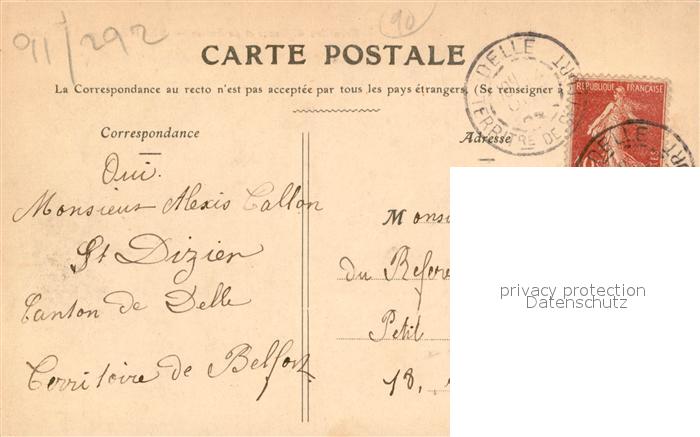 91/292
90
CARTE POSTALE
La Correspondance au recto n'est pas acceptée par tous les pays étrangers. (Se renseigner à
DELLE
TERRIT. RE DE BELFORT
REPUBLIQUE FRANÇAISE
DELLE
Correspondance
Adresse
Oui.
Monsieur Alexis Callon
St Dizier
Canton de Delle
Territoire de Belfort
Monsi
du
Petit
18,
privacy protection
Datenschutz